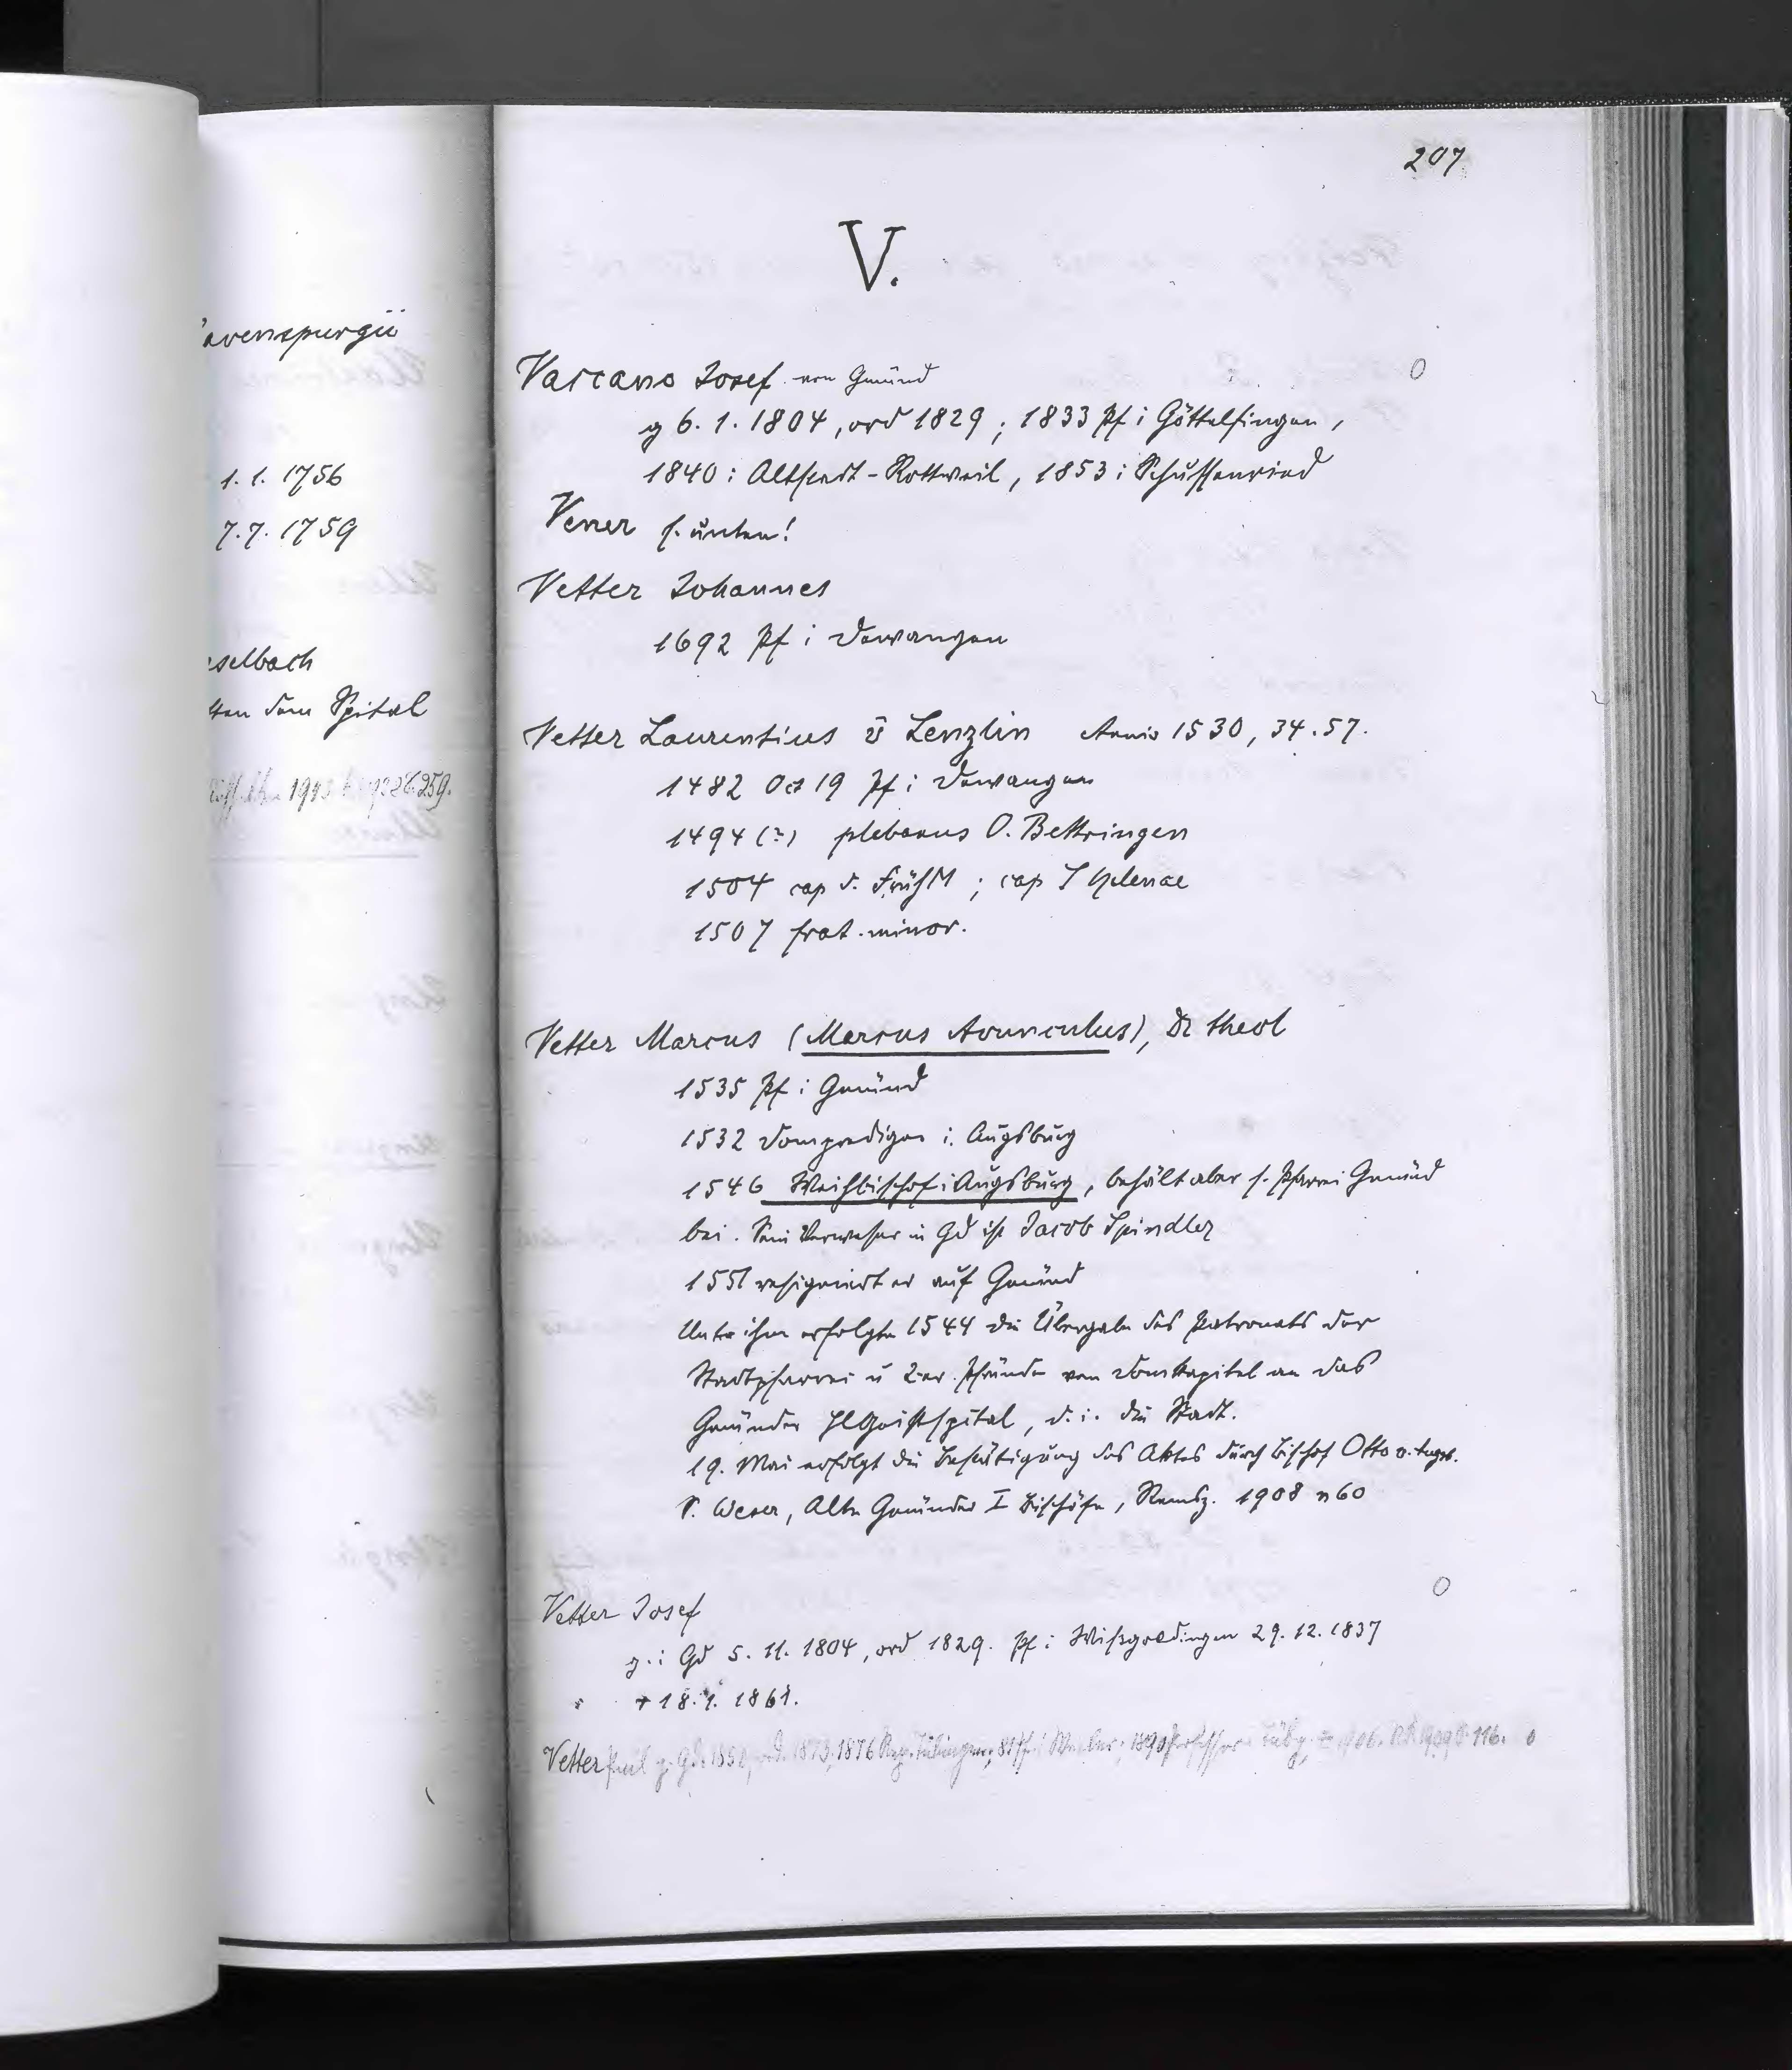 207
V.
avenspurgii
1. 1. 1756
7. 7. 1759
selbach
dem Spital
Vascano Josef von Gmünd
g 6. 1. 1804, ord 1829; 1833 Pf i Göttelfingen,
1840: Altstadt-Rottweil, 1853: Schussenried
Vener s. unten!
Vetter Johannes
1692 Pf i Dewangen
Vetter Laurentius v̄ Lenzlin Annis 1530, 34. 57.
1482 Oct 19 Pf i Dewangen
1494 (?) plebanus O. Bettringen
1504 cap d. FrühM; cap S Helenae
1507 frat. minor.
Vetter Marcus (Marcus Avunculus), Dr theol
1535 Pf i Gmünd
1532 Domprediger i. Augsburg
1546 Weihbischof i Augsburg, behält aber s. Pfarrei Gmünd
bei. Sein Verweser in Gd ist Jacob Spindler
1551 resigniert er auf Gmünd
Unter ihm erfolgte 1544 die Übergabe des Patronats der
Stadtpfarrei u 2er Pfründen vom Domkapitel an das
Gmünder HlGeistspital, d. i. die Stadt.
19. Mai erfolgt die Bestätigung des Aktes durch Bischof Otto v. Augsb.
S. Weser, Alte Gmünder I Bischöfe, Remsz. 1908 n 60
Vetter Josef
g. i Gd 5. 11. 1804, ord 1829. Pf i Wißgoldingen 29. 12. 1837
+ 18. 1. 1861.
Vetter Paul g. Gd. 1850, ord. 1873, 1876 Rep. Tübingen; Pf i 1890 Professor Tübg, 116.